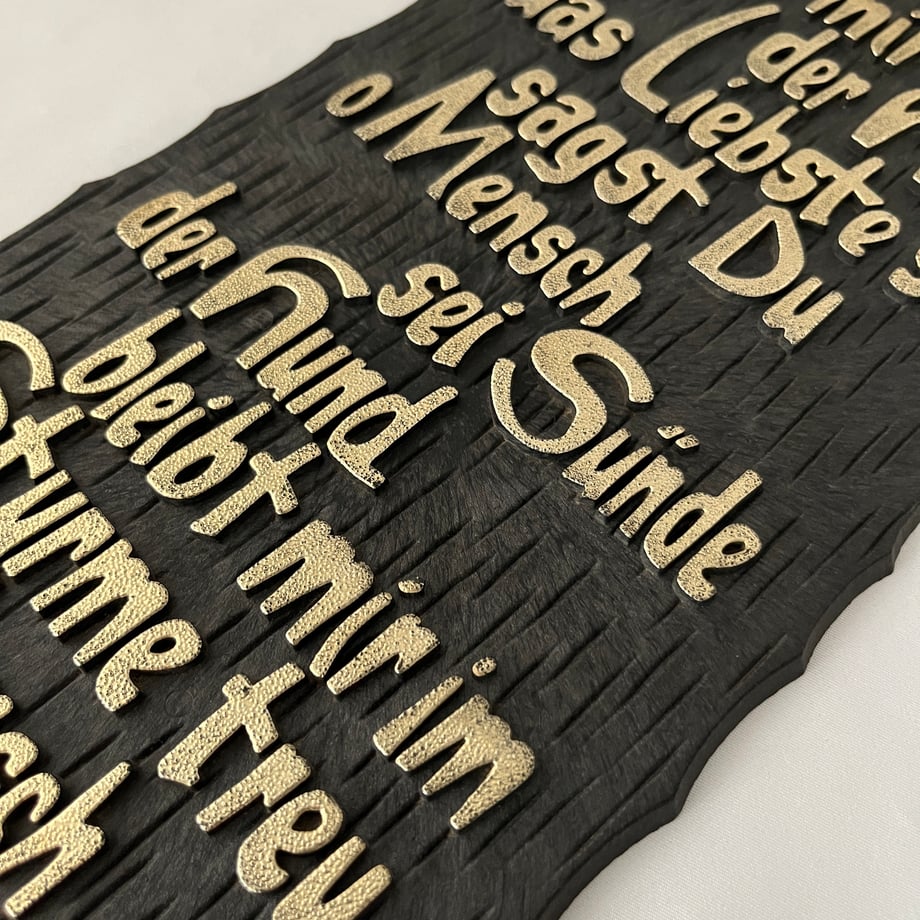 mir
der
das Liebste
sagst Du
o Mensch
sei Sünde
der Hund
bleibt mir im
Sturme treu
sch